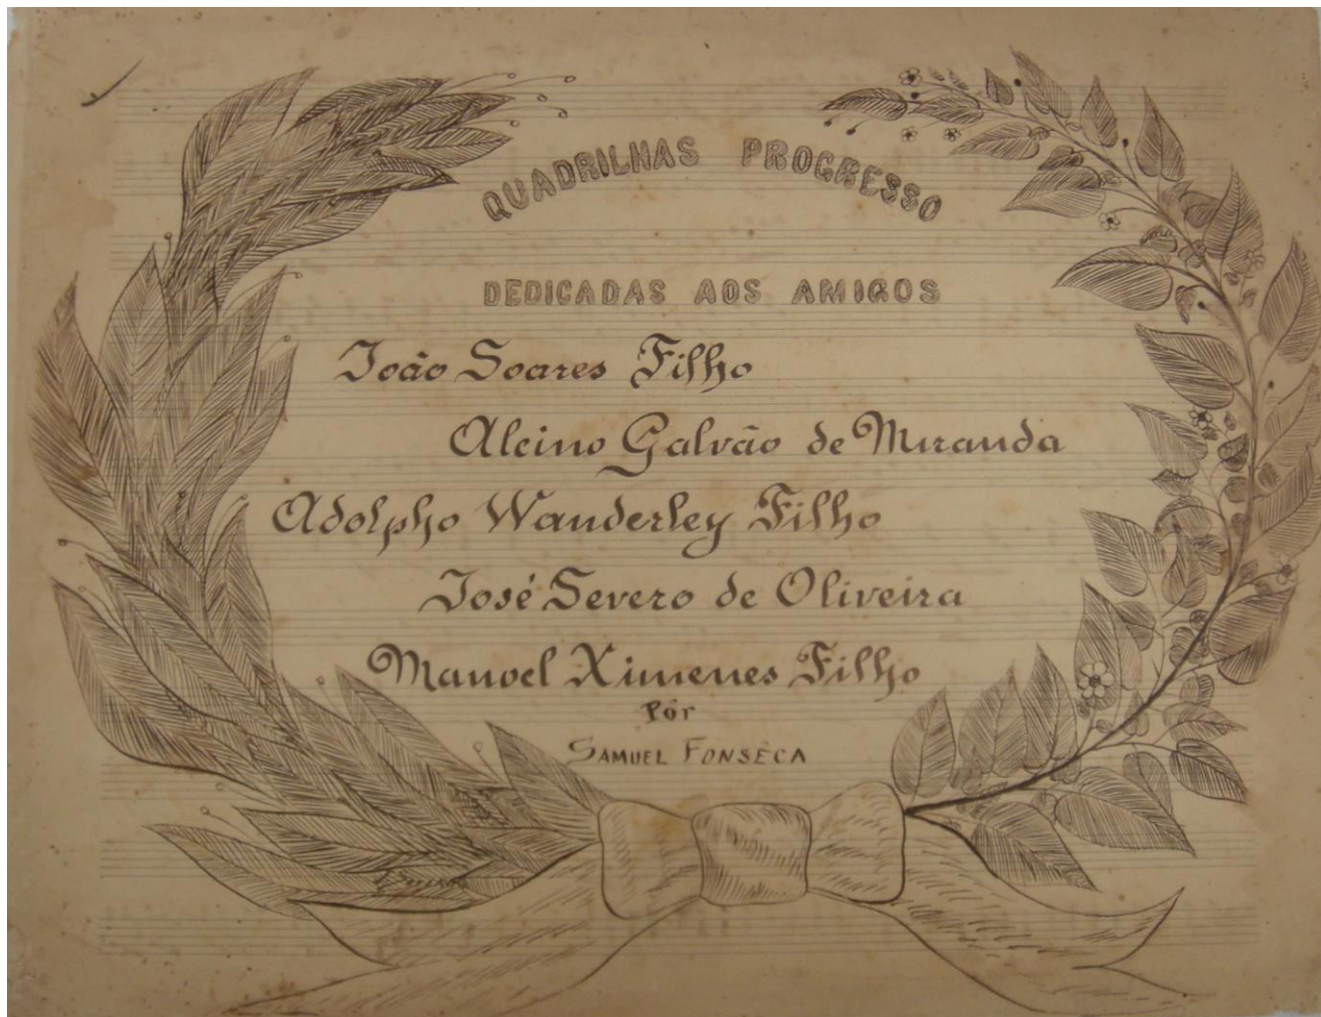 QUADRILHAS PROGRESSO
DEDICADAS AOS AMIGOS
João Soares Filho
Alcino Galvão de Miranda
Adolpho Wanderley Filho
José Severo de Oliveira
Manoel Ximenes Filho
Pôr
SAMUEL FONSÊCA